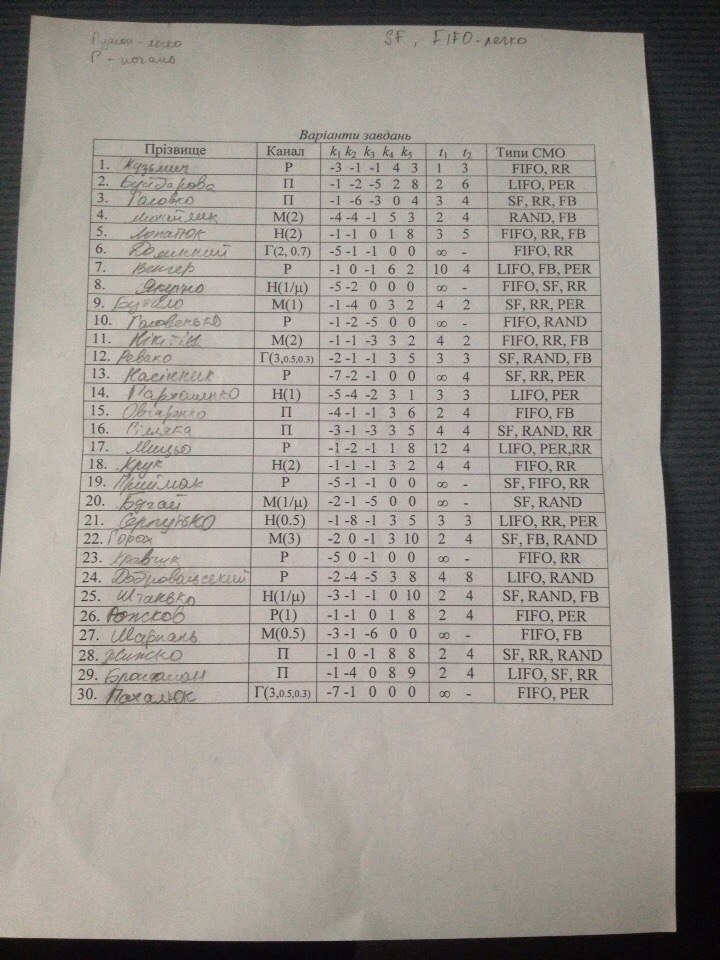 SF, FIFO-легко
Р - погано
Варіанти завдань
Прізвище Канал k1 k2 k3 k4 k5 t1 t2 Типи СМО
1. Кузьмич Р -3 -1 -1 4 3 1 3 FIFO, RR
2. П -1 -2 -5 2 8 2 6 LIFO, PER
3. Головко П -1 -6 -3 0 4 3 4 SF, RR, FB
4. М(2) -4 -4 -1 5 3 2 4 RAND, FB
5. Лопатюк Н(2) -1 -1 0 1 8 3 5 FIFO, RR, FB
6. Г(2, 0.7) -5 -1 -1 0 0 ∞ - FIFO, RR
7. Венгер Р -1 0 -1 6 2 10 4 LIFO, FB, PER
8. Н(1/μ) -5 -2 0 0 0 ∞ - FIFO, SF, RR
9. М(1) -1 -4 0 3 2 4 2 SF, RR, PER
10. Головенько Р -1 -2 -5 0 0 ∞ - FIFO, RAND
11. Нікітін М(2) -1 -1 -3 3 2 4 2 FIFO, RR, FB
12. Г(3,0.5,0.3) -2 -1 -1 3 5 3 3 SF, RAND, FB
13. Насінник Р -7 -2 -1 0 0 ∞ 4 SF, RR, PER
14. Пархоменко Н(1) -5 -4 -2 3 1 3 3 LIFO, PER
15. Овчаренко П -4 -1 -1 3 6 2 4 FIFO, FB
16. Гіляка П -3 -1 -3 3 5 4 4 SF, RAND, RR
17. Мицьо Р -1 -2 -1 1 8 12 4 LIFO, PER,RR
18. Крук Н(2) -1 -1 -1 3 2 4 4 FIFO, RR
19. Приймак Р -5 -1 -1 0 0 ∞ - SF, FIFO, RR
20. М(1/μ) -2 -1 -5 0 0 ∞ - SF, RAND
21. Н(0.5) -1 -8 -1 3 5 3 3 LIFO, RR, PER
22. Горох М(3) -2 0 -1 3 10 2 4 SF, FB, RAND
23. Кравчик Р -5 0 -1 0 0 ∞ - FIFO, RR
24. Добровольський Р -2 -4 -5 3 8 4 8 LIFO, RAND
25. Штанько Н(1/μ) -3 -1 -1 0 10 2 4 SF, RAND, FB
26. Р(1) -1 -1 0 1 8 2 4 FIFO, PER
27. Шарпань М(0.5) -3 -1 -6 0 0 ∞ - FIFO, FB
28. П -1 0 -1 8 8 2 4 SF, RR, RAND
29. П -1 -4 0 8 9 2 4 LIFO, SF, RR
30. Пахалюк Г(3,0.5,0.3) -7 -1 0 0 0 ∞ - FIFO, PER